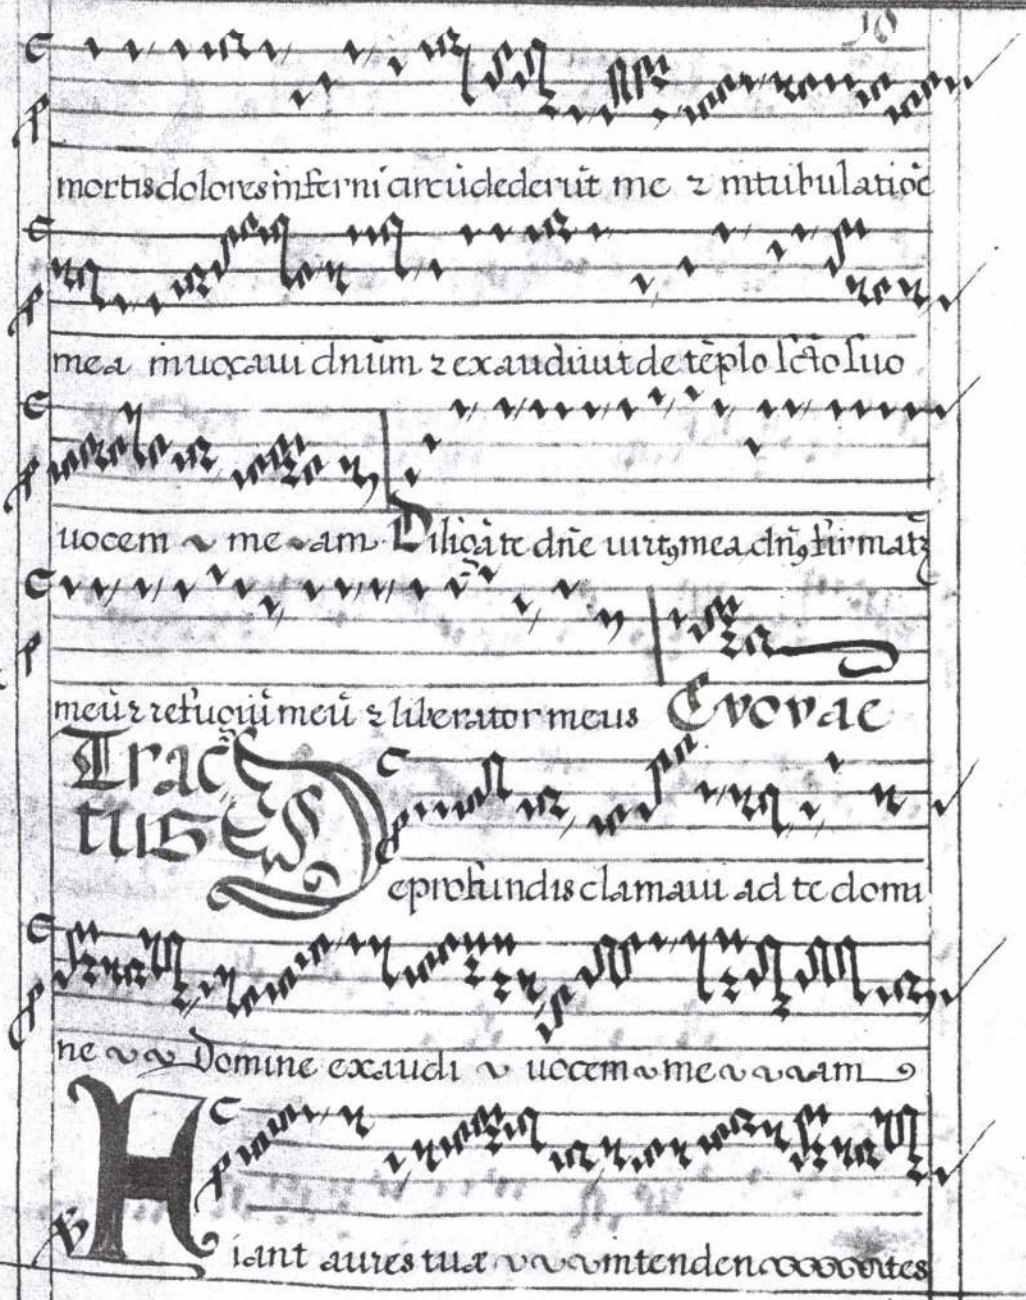 mortis dolores inferni circūdederūt me ⁊ in tribulatiōe
mea inuocaui dnūm ⁊ exaudiuit de tēplo sc̄to suo
uocem me am Diligā te dn̄e uirtꝰ mea dn̄ꝰ firmatꝫ
meū ⁊ refugiū meū ⁊ liberator meus Evovae
Trac
tus De profundis clamaui ad te domi
ne Domine exaudi uocem me am
℣ Hiant aures tuæ intenden tes